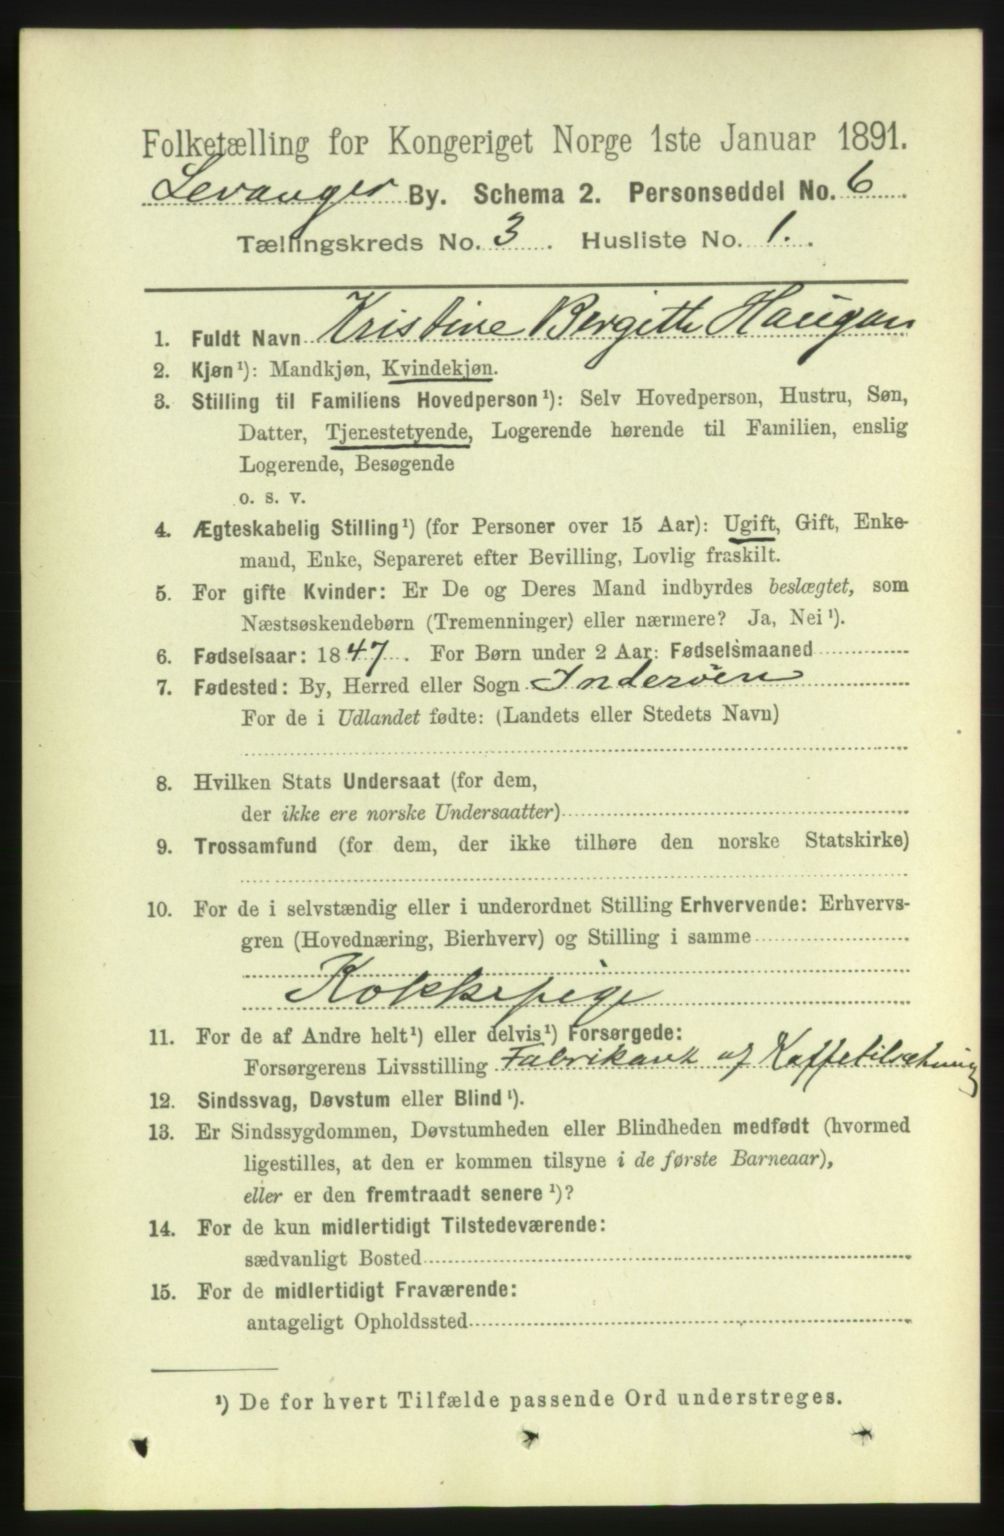 Folketælling for Kongeriget Norge 1ste Januar 1891.
Levanger By. Schema 2. Personseddel No. 6
Tællingskreds No. 3. Husliste No. 1.
1. Fuldt Navn Kristine Bergitte Haugan
2. Kjøn¹): Mandkjøn, Kvindekjøn.
3. Stilling til Familiens Hovedperson¹): Selv Hovedperson, Hustru, Søn,
Datter, Tjenestetyende, Logerende hørende til Familien, enslig
Logerende, Besøgende
o. s. v.
4. Ægteskabelig Stilling¹) (for Personer over 15 Aar): Ugift, Gift, Enke-
mand, Enke, Separeret efter Bevilling, Lovlig fraskilt.
5. For gifte Kvinder: Er De og Deres Mand indbyrdes beslægtet, som
Næstsøskendebørn (Tremenninger) eller nærmere? Ja, Nei¹).
6. Fødselsaar: 1847. For Børn under 2 Aar: Fødselsmaaned
7. Fødested: By, Herred eller Sogn Inderöen
For de i Udlandet fødte: (Landets eller Stedets Navn)
8. Hvilken Stats Undersaat (for dem,
der ikke ere norske Undersaatter)
9. Trossamfund (for dem, der ikke tilhøre den norske Statskirke)
10. For de i selvstændig eller i underordnet Stilling Erhvervende: Erhvervs-
gren (Hovednæring, Bierhverv) og Stilling i samme
Kokkepige
11. For de af Andre helt¹) eller delvis¹) Forsørgede:
Forsørgerens Livsstilling Fabrikant af Kaffetilsætning
12. Sindssvag, Døvstum eller Blind¹).
13. Er Sindssygdommen, Døvstumheden eller Blindheden medfødt (hvormed
ligestilles, at den er kommen tilsyne i de første Barneaar),
eller er den fremtraadt senere¹)?
14. For de kun midlertidigt Tilstedeværende:
sædvanligt Bosted
15. For de midlertidigt Fraværende:
antageligt Opholdssted
¹) De for hvert Tilfælde passende Ord understreges.